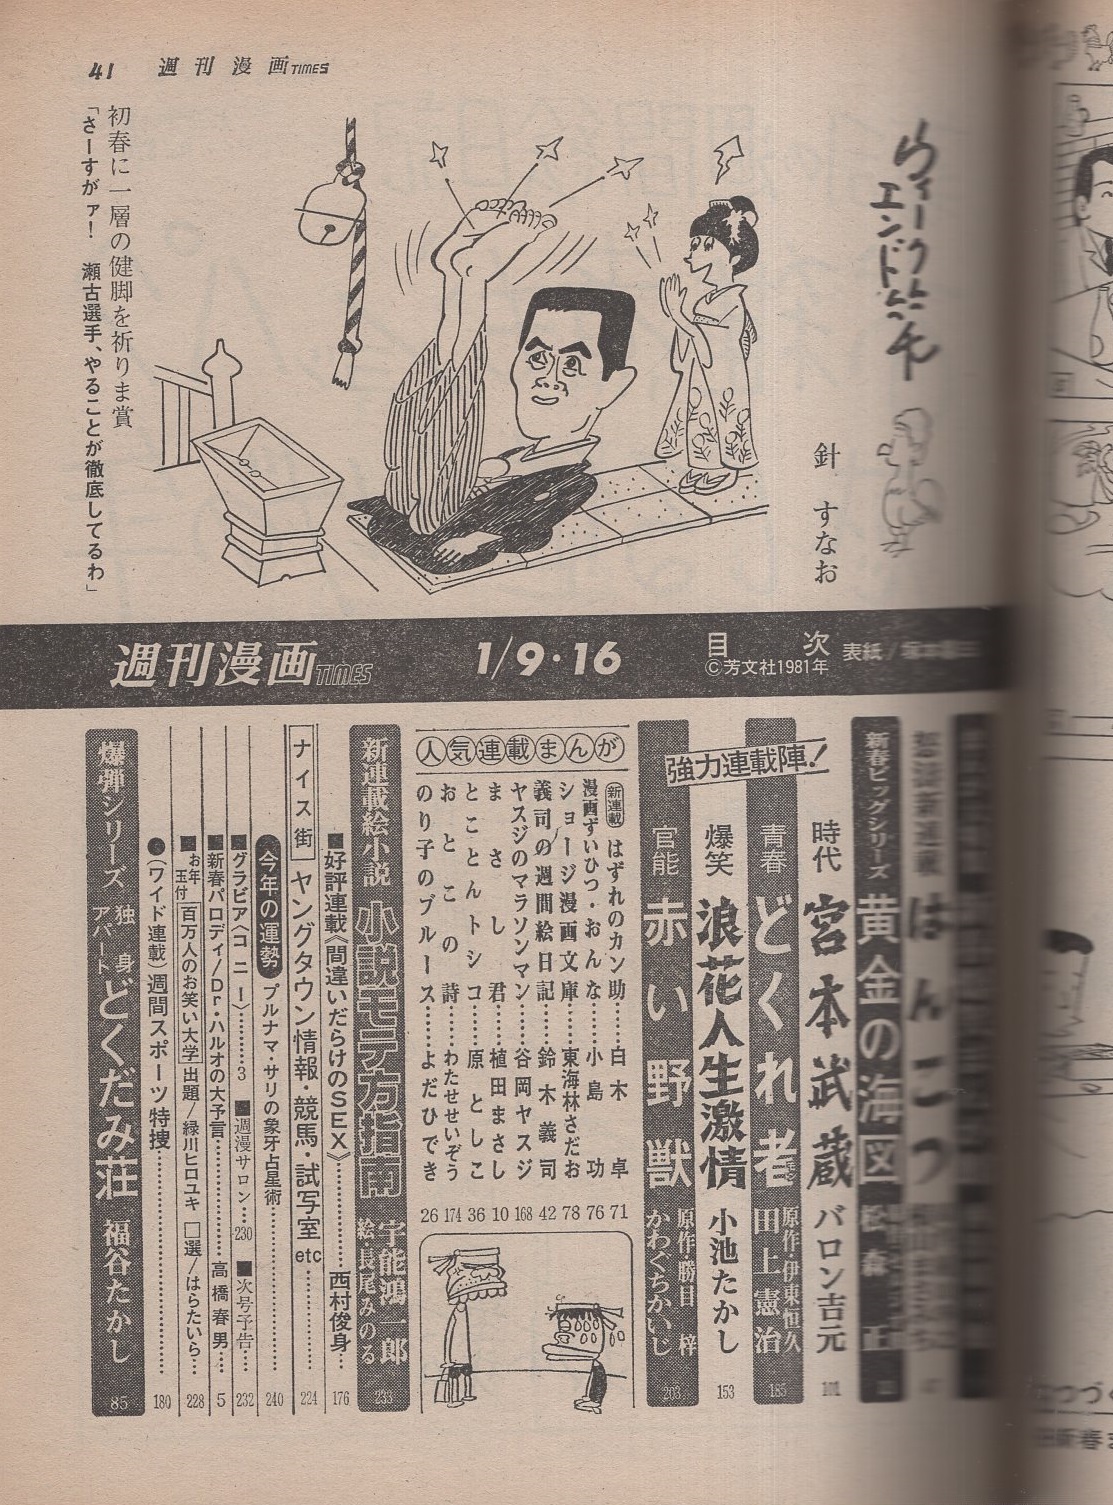 41 週刊漫画TIMES
ウィークエンド
針 すなお
初春に一層の健脚を祈りま賞
「さーすがァ！ 瀬古選手、やることが徹底してるわ」
週刊漫画TIMES 1/9・16 目次 ©芳文社1981年 表紙/塚本
はんこつ
新春ビッグシリーズ 黄金の海図 松森 正
時代 宮本武蔵 バロン吉元 101
強力連載陣！
青春 どくれ者 原作・伊東恒久 田上憲治 185
爆笑 浪花人生激情 小池たかし 153
官能 赤い野獣 原作・勝目 梓 かわぐちかいじ 203
人気連載まんが
新連載 はずれのカン助……白木 卓 71
漫画ずいひつ・おんな……小島 功 76
ショージ漫画文庫……東海林さだお 78
義司の週間絵日記……鈴木義司 42
ヤスジのマラソンマン……谷岡ヤスジ 168
まさし君……植田まさし 10
とことんトシコ……原 としこ 36
おとこの詩……わたせせいぞう 174
のり子のブルース……よだひでき 26
新連載絵小説 小説モテ方指南 宇能鴻一郎 絵・長尾みのる 233
■好評連載《間違いだらけのSEX》……西村俊身… 176
ナイス街 ヤングタウン情報・競馬・試写室etc…… 224
今年の運勢 プルナマ・サリの象牙占星術…… 240
■グラビア〈コニー〉……3 ■週漫サロン…230 ■次号予告… 232
■新春パロディ/Dr・ハルオの大予言……高橋春男… 5
■お年玉付 百万人のお笑い大学 出題/緑川ヒロユキ □選/はらたいら… 228
●〈ワイド連載〉週間スポーツ特捜…… 180
爆弾シリーズ 独身アパート どくだみ荘 福谷たかし 85